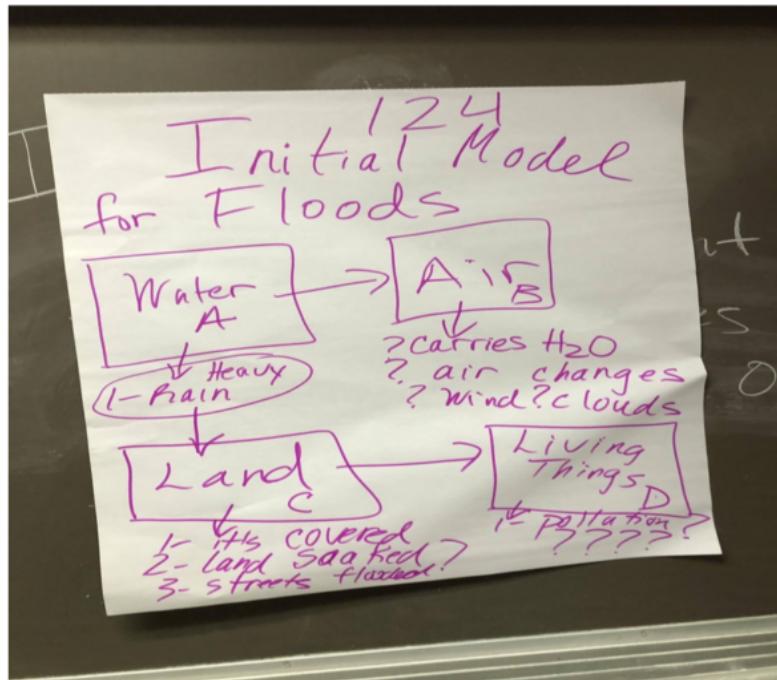 124
Initial Model
for Floods
Water
A
Air
B
1- Heavy Rain
? carries H2O
? air changes
? wind ? clouds
Land
C
Living
Things
D
1- it's covered
2- land soaked ?
3- streets flooded
1- pollution ?
? ? ? ?